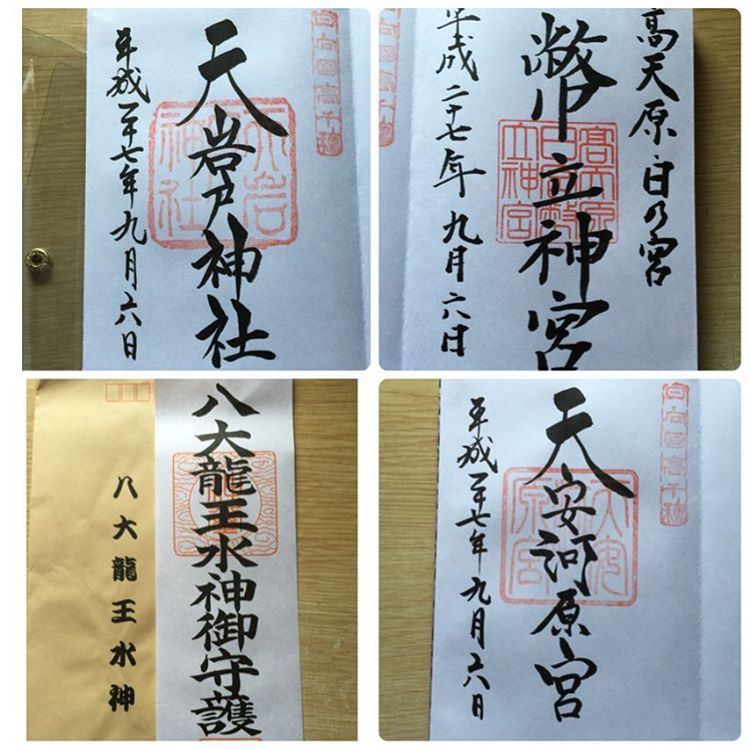 天岩戸神社
平成二十七年九月六日
日向国高千穂
天岩
神社
高天原日の宮
幣立神宮
平成二十七年九月六日
八大龍王水神御守護
八大龍王水神
日向國高千穂
天安河原宮
平成二十七年九月六日